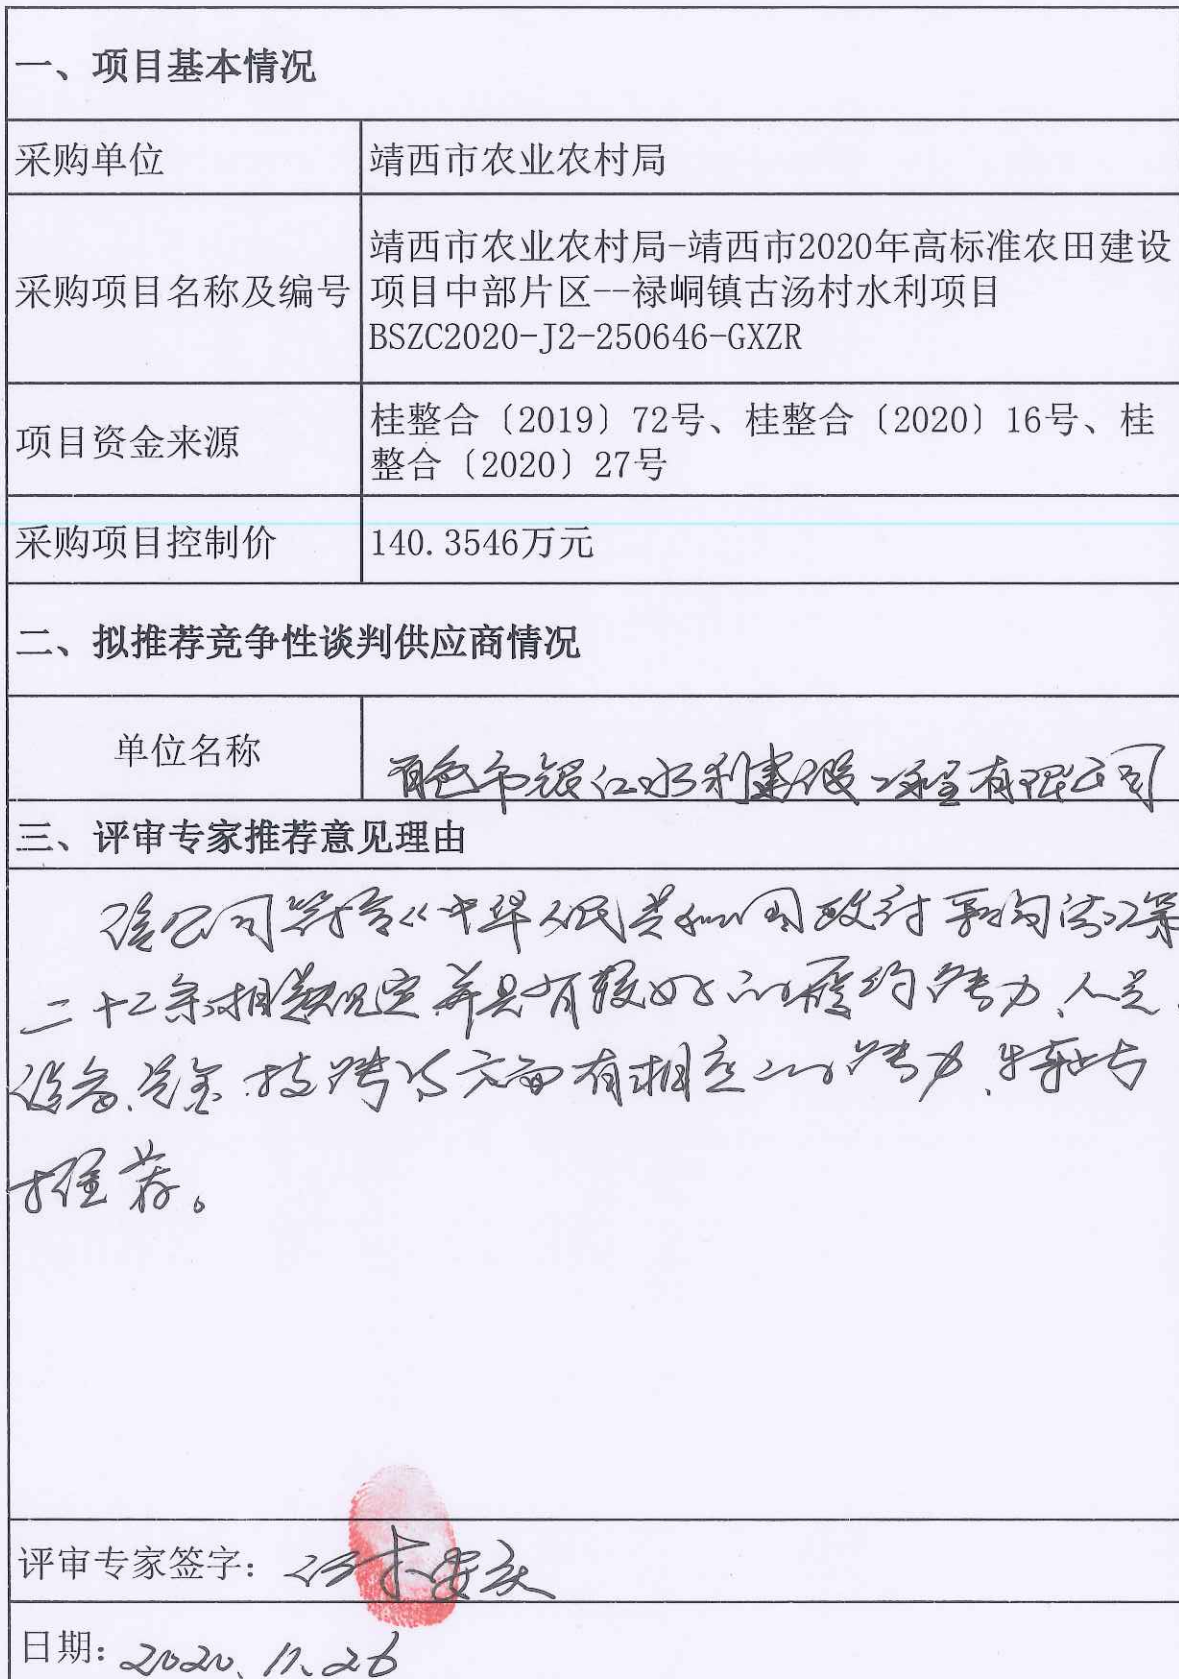 一、项目基本情况
采购单位
靖西市农业农村局
采购项目名称及编号
靖西市农业农村局-靖西市2020年高标准农田建设
项目中部片区--禄峒镇古汤村水利项目
BSZC2020-J2-250646-GXZR
项目资金来源
桂整合〔2019〕72号、桂整合〔2020〕16号、桂
整合〔2020〕27号
采购项目控制价
140.3546万元
二、拟推荐竞争性谈判供应商情况
单位名称
百色市银江水利建设工程有限公司
三、评审专家推荐意见理由
该公司符合《中华人民共和国政府采购法》第
二十二条相关规定并具有较好的履约能力、人员、
设备、资金、技术等方面有相应的能力,特此
推荐。
评审专家签字:
日期: 2020.11.26